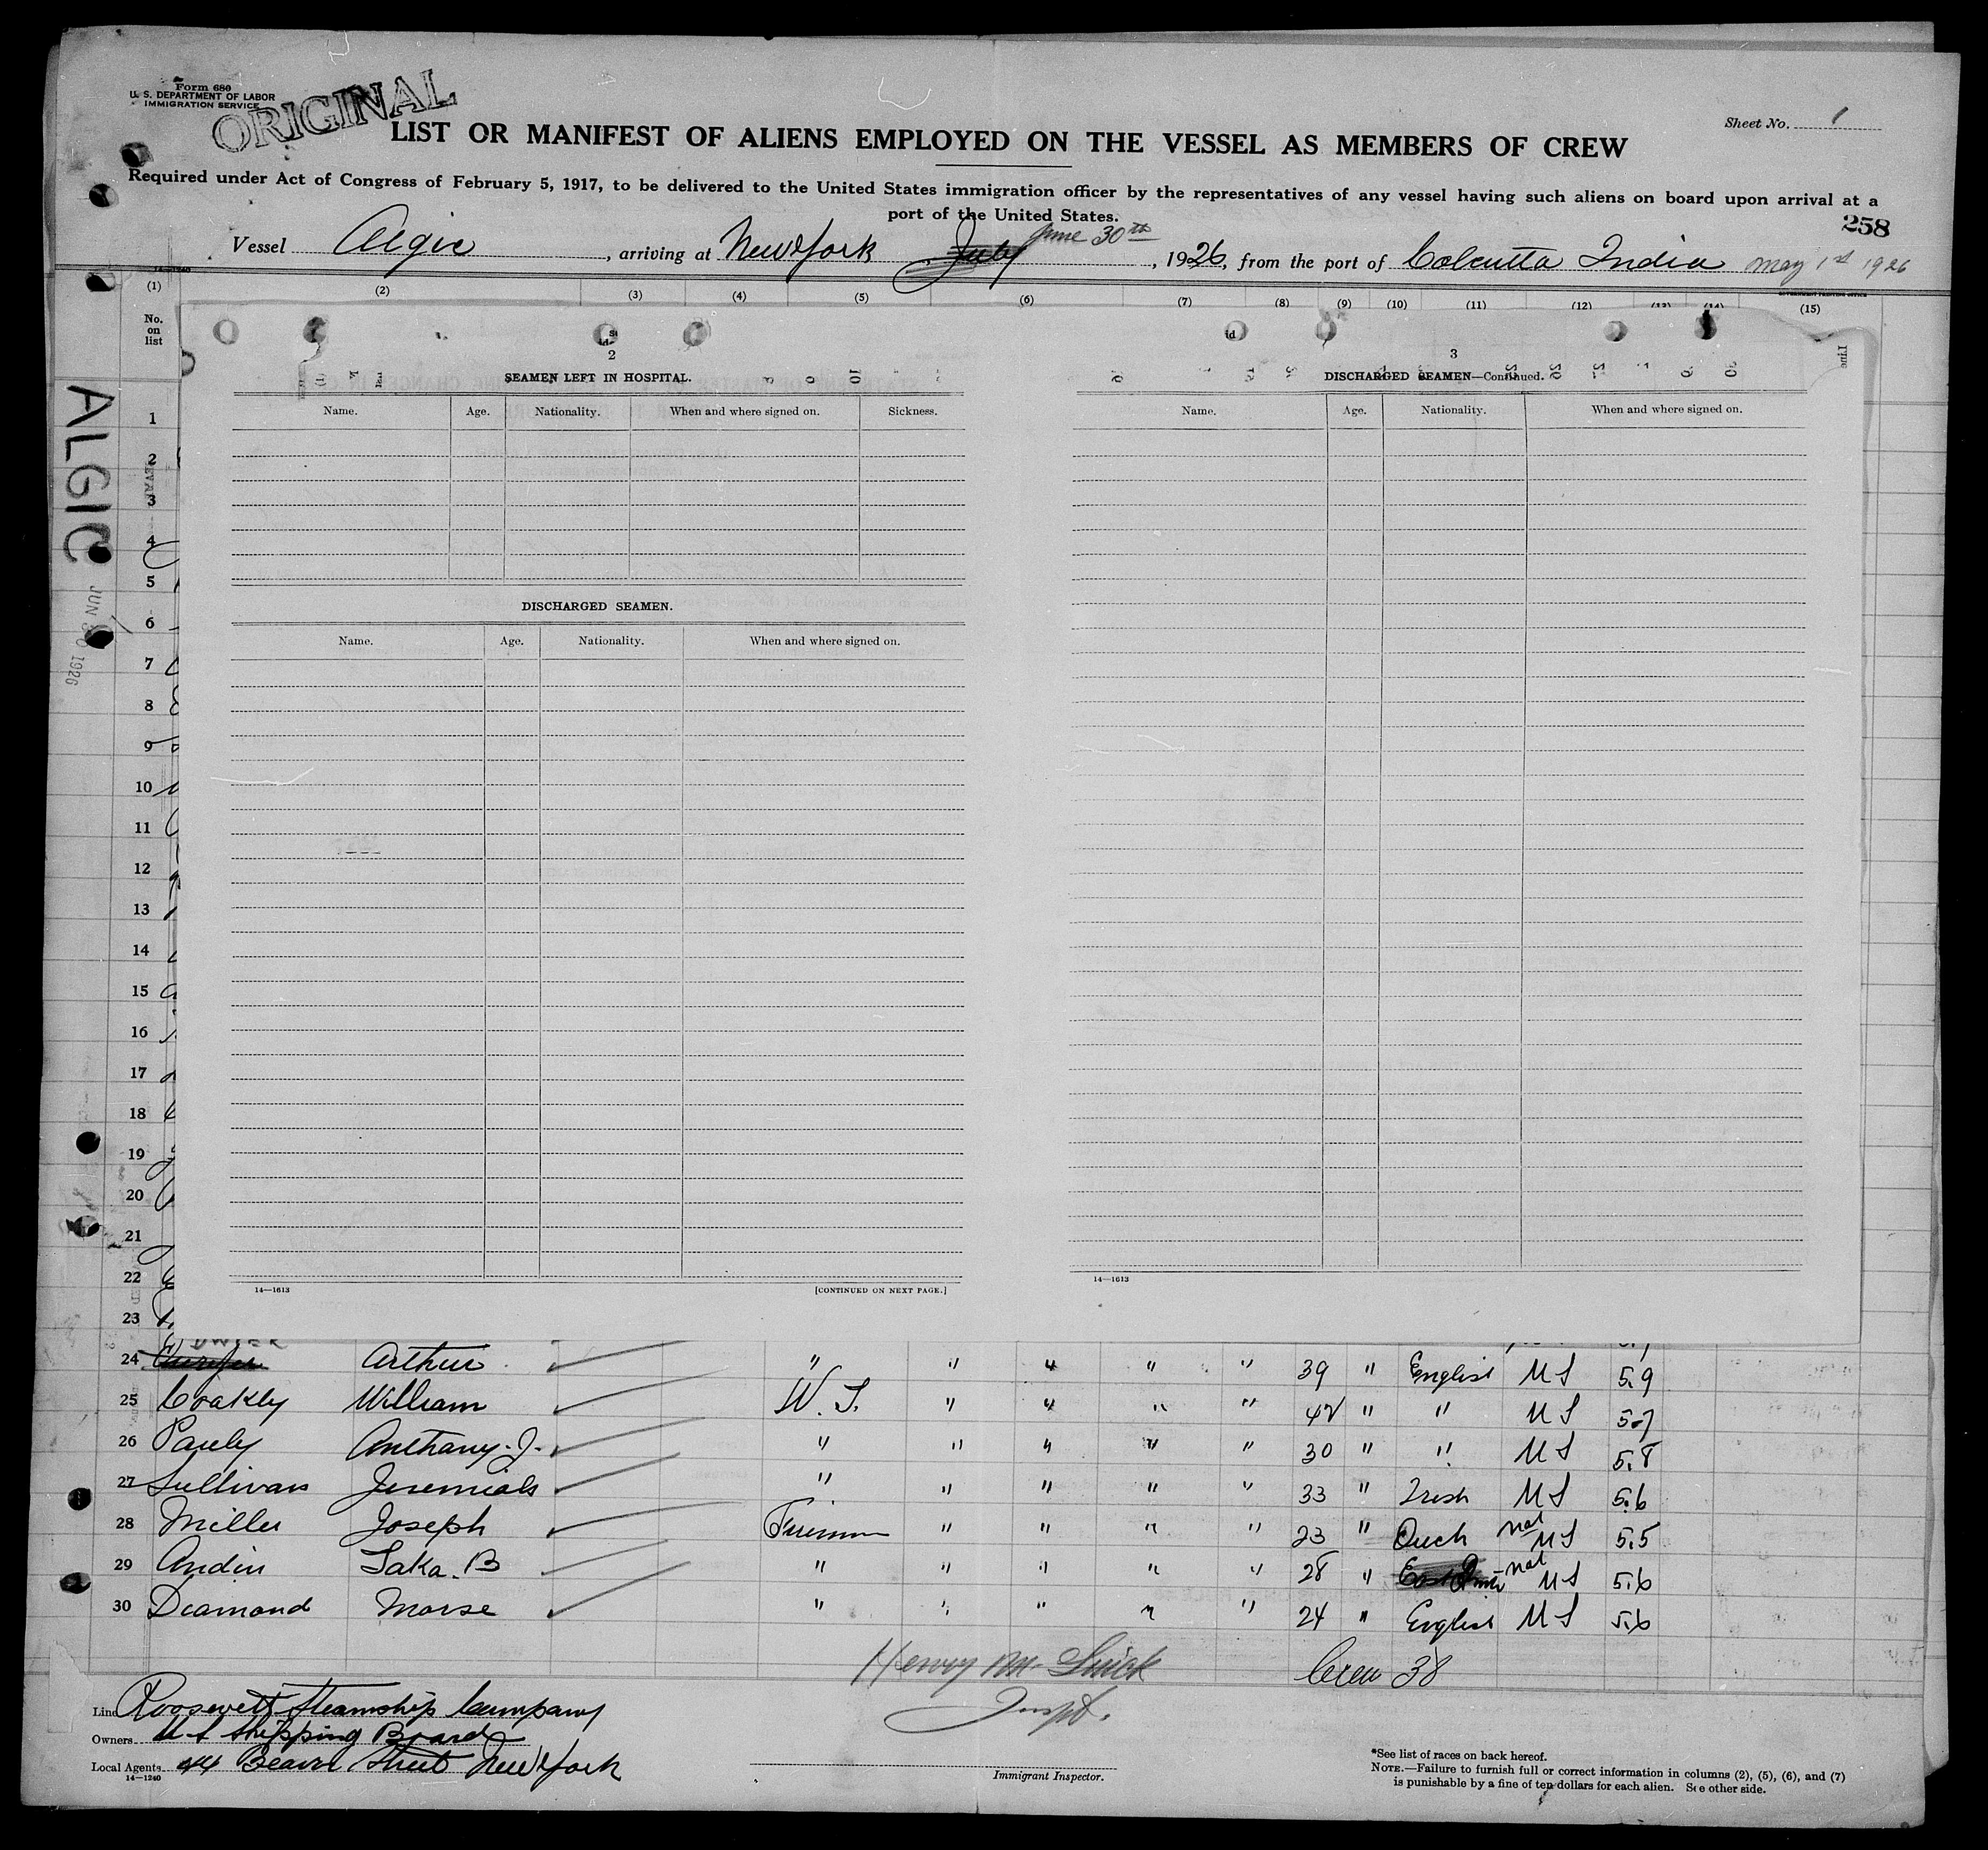 Form 680
U. S. DEPARTMENT OF LABOR
IMMIGRATION SERVICE
ORIGINAL
Sheet No. 1
LIST OR MANIFEST OF ALIENS EMPLOYED ON THE VESSEL AS MEMBERS OF CREW
Required under Act of Congress of February 5, 1917, to be delivered to the United States immigration officer by the representatives of any vessel having such aliens on board upon arrival at a
port of the United States.
258
Vessel Algic, arriving at New York July June 30th, 1926, from the port of Calcutta India May 1st 1926
14—1240
GOVERNMENT PRINTING OFFICE
(1) (2) (3) (4) (5) (6) (7) (8) (9) (10) (11) (12) (13) (14) (15)
No. on list
ALGIC
JUN 30 1926
2
SEAMEN LEFT IN HOSPITAL.
Name. Age. Nationality. When and where signed on. Sickness.
DISCHARGED SEAMEN.
Name. Age. Nationality. When and where signed on.
14—1613 [CONTINUED ON NEXT PAGE.]
3
DISCHARGED SEAMEN—Continued.
Name. Age. Nationality. When and where signed on.
14—1613
1
2
3
4
5
6
7
8
9
10
11
12
13
14
15
16
17
18
19
20
21
22
23
DWYER
24 Arthur " " " " " 39 " English US 5.9
25 Coakley William W. T. " " " " 42 " " US 5.7
26 Pauly Anthony. J. " " " " " 30 " " US 5.8
27 Sullivan Jeremiah " " " " " 33 " Irish US 5.6
28 Miller Joseph Fireman " " " " 23 " Duch nat US 5.5
29 Andin Saka. B " " " " " 28 " nat US 5.6
30 Diamond Morse " " " " " 24 " English US 5.6
Henry M.
Inspt.
Crew 38
Line Roosevelt Steamship Company
Owners U S Shipping Board
Local Agents 44 Beaver Street New York
14—1240
Immigrant Inspector.
*See list of races on back hereof.
NOTE.—Failure to furnish full or correct information in columns (2), (5), (6), and (7)
is punishable by a fine of ten dollars for each alien. See other side.